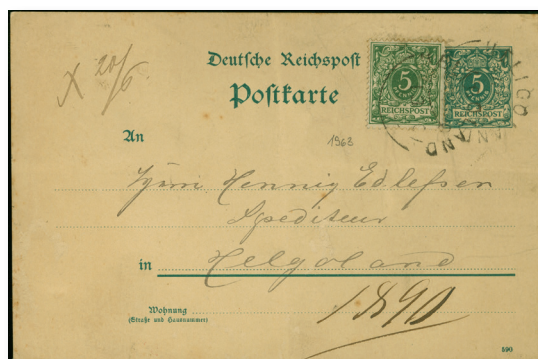 X 20/6
Deutsche Reichspost
Postkarte
5
REICHSPOST
5
REICHSPOST
HELIGOLAND
An
1963
Hennig Edlefsen
Spediteur
in Helgoland
Wohnung
(Straße und Hausnummer)
1890
590